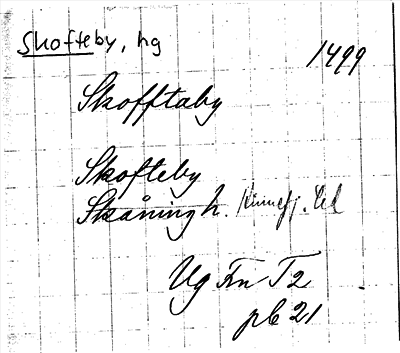 Skofteby, hg
1499
Skofftaby
Skofteby
Skåning h. Kinnefj. hd
Vg Fn T2
pb 21